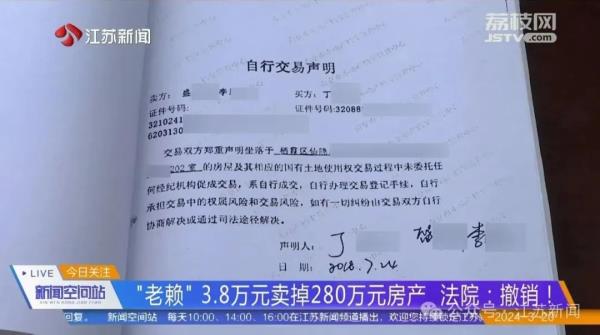 江苏新闻
荔枝网
JSTV.com
自行交易声明
卖方：盛 李 买方：丁
证件号码： 证件号码：32088
3210241
6203130
交易双方郑重声明坐落于 栖霞区仙隐
202室 的房屋及其相应的国有土地使用权交易过程中未委托任
何经纪机构促成交易，系自行成交，自行办理交易登记手续，自行
承担交易中的权属风险和交易风险，如有一切纠纷由交易双方自行
协商解决或通过司法途径解决。
声明人： 丁 李
日 期： 2018.7.24
LIVE 今日关注
新闻空间站
XIN WEN KONG JIAN ZHAN
"老赖" 3.8万元卖掉280万元房产 法院：撤销！
回复。 新闻空间站 每天10:00、14:00、16:00在江苏新闻频道播出，欢迎您持续锁定江苏
公众号·江苏新闻